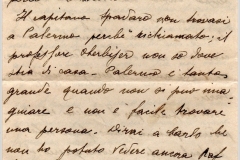 Il capitano Spadaro non trovasi
a Palermo perchè richiamato; il
professore Oberlisser non so dove
stia di casa. Palermo è tanto
grande quando non si può ima-
guiare e non è facile trovare
una persona. Dirai a
non ho potuto vedere ancora